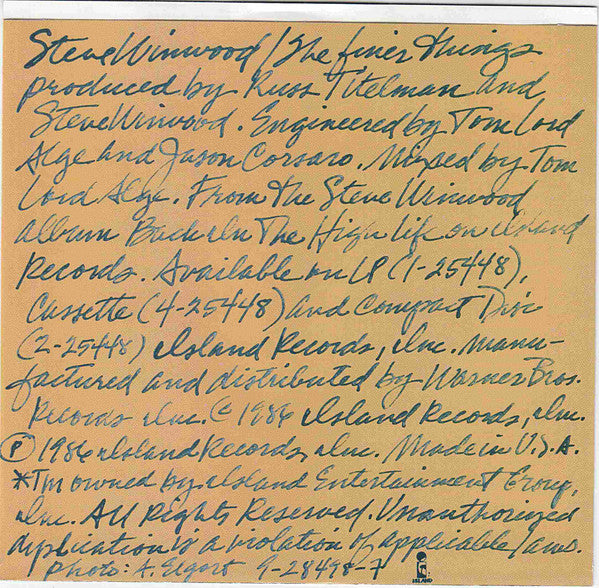 Steve Winwood / The finer Things
produced by Russ Titelman and
Steve Winwood. Engineered by Tom Lord
Alge and Jason Corsaro. Mixed by Tom
Lord Alge. From The Steve Winwood
album Back In The High Life on Island
Records. Available on LP (1-25448),
Cassette (4-25448) and Compact Disc
(2-25448) Island Records, Inc. Manu-
factured and distributed by Warner Bros.
Records Inc. © 1986 Island Records, Inc.
℗ 1986 Island Records, Inc. Made in U.S.A.
*TM owned by Island Entertainment Group,
Inc. All Rights Reserved. Unauthorized
duplication is a violation of applicable laws.
Photo: A. Elgort 9-28498-7
ISLAND